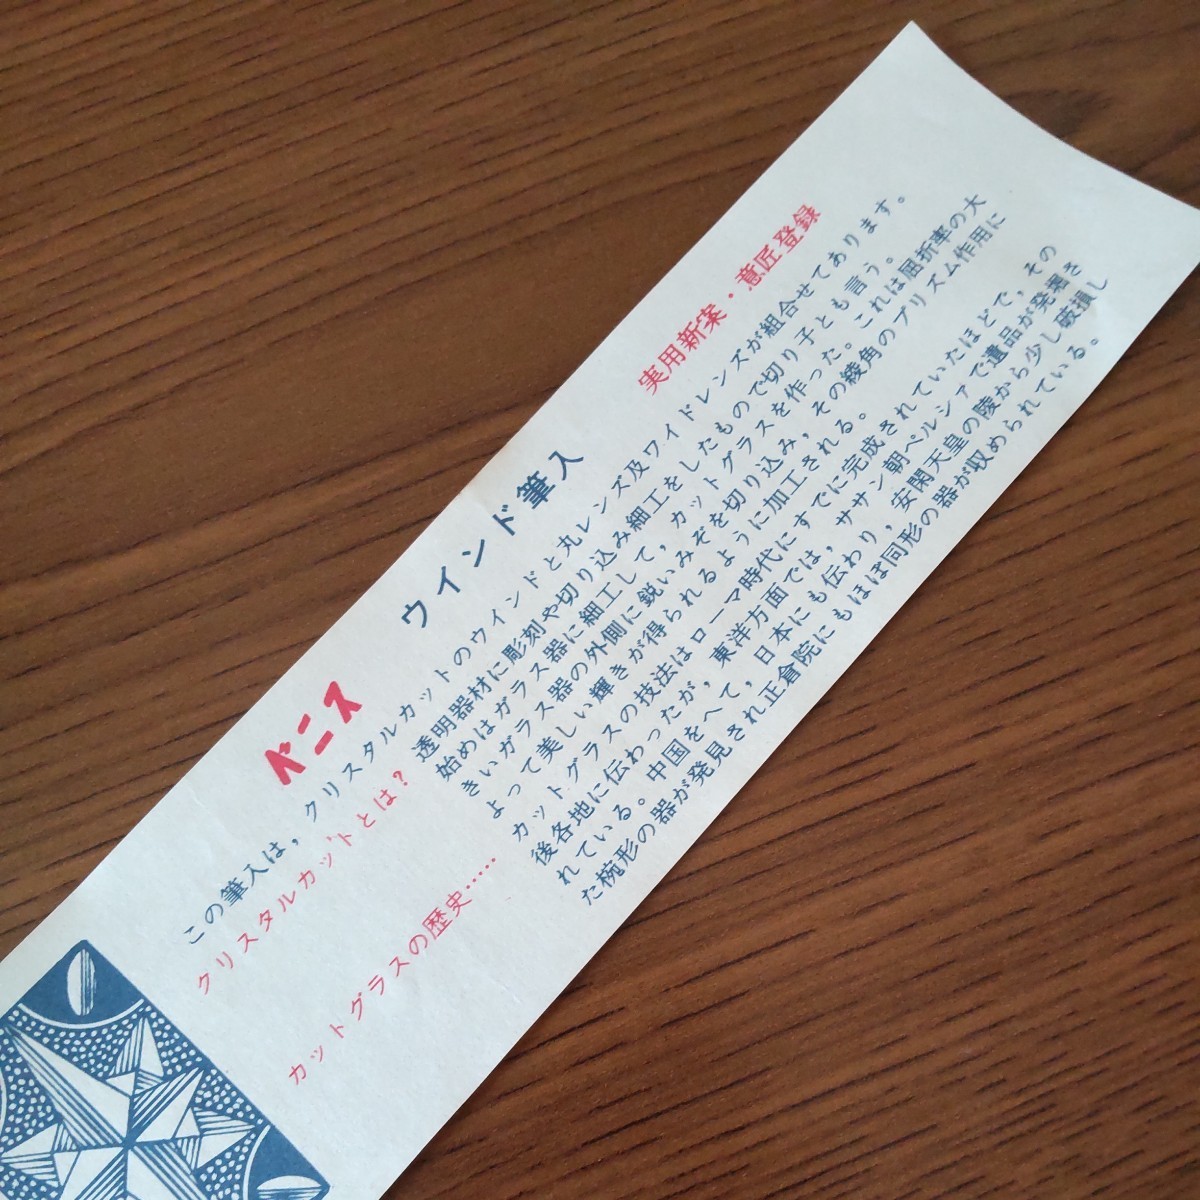 ベニス ウインド筆入 実用新案・意匠登録
この筆入は，クリスタルカットのウインドと丸レンズ及ワイドレンズが組合せてあります。
クリスタルカットとは？ 透明器材に彫刻や切り込み細工をしたもので切り子とも言う。
始めはガラス器に細工して，カットグラスを作った。これは屈折率の大
きいガラス器の外側に鋭いみぞを切り込み，その綾角のプリズム作用に
よって美しい輝きが得られるように加工される。
カットグラスの歴史…… カットグラスの技法はローマ時代にすでに完成されていたほどで，その
後各地に伝わったが，東洋方面では，ササン朝ペルシァで遺品が発堀さ
れている。中国をへて，日本にも伝わり，安閑天皇の陵から少し破損し
た椀形の器が発見され正倉院にもほぼ同形の器が収められている。